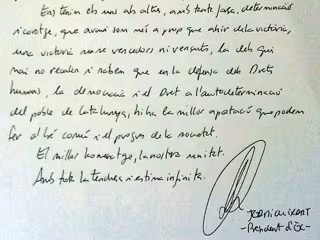 Ens tenim els uns als altres, amb tanta força, determinació
i coratge, que avui som més a prop que ahir de la victòria,
una victòria sense vencedors ni vençuts, la dels qui
mai no reculen i saben que en la defensa dels Drets
humans, la democràcia i el Dret a l'autodeterminació
del poble de Catalunya, hi ha la millor aportació que podem
fer al bé comú i el progrés de la societat.
El millor homenatge, la nostra unitat.
Amb tota la tendresa i estima infinita.
JORDI CUIXART
-President d'ÒC-